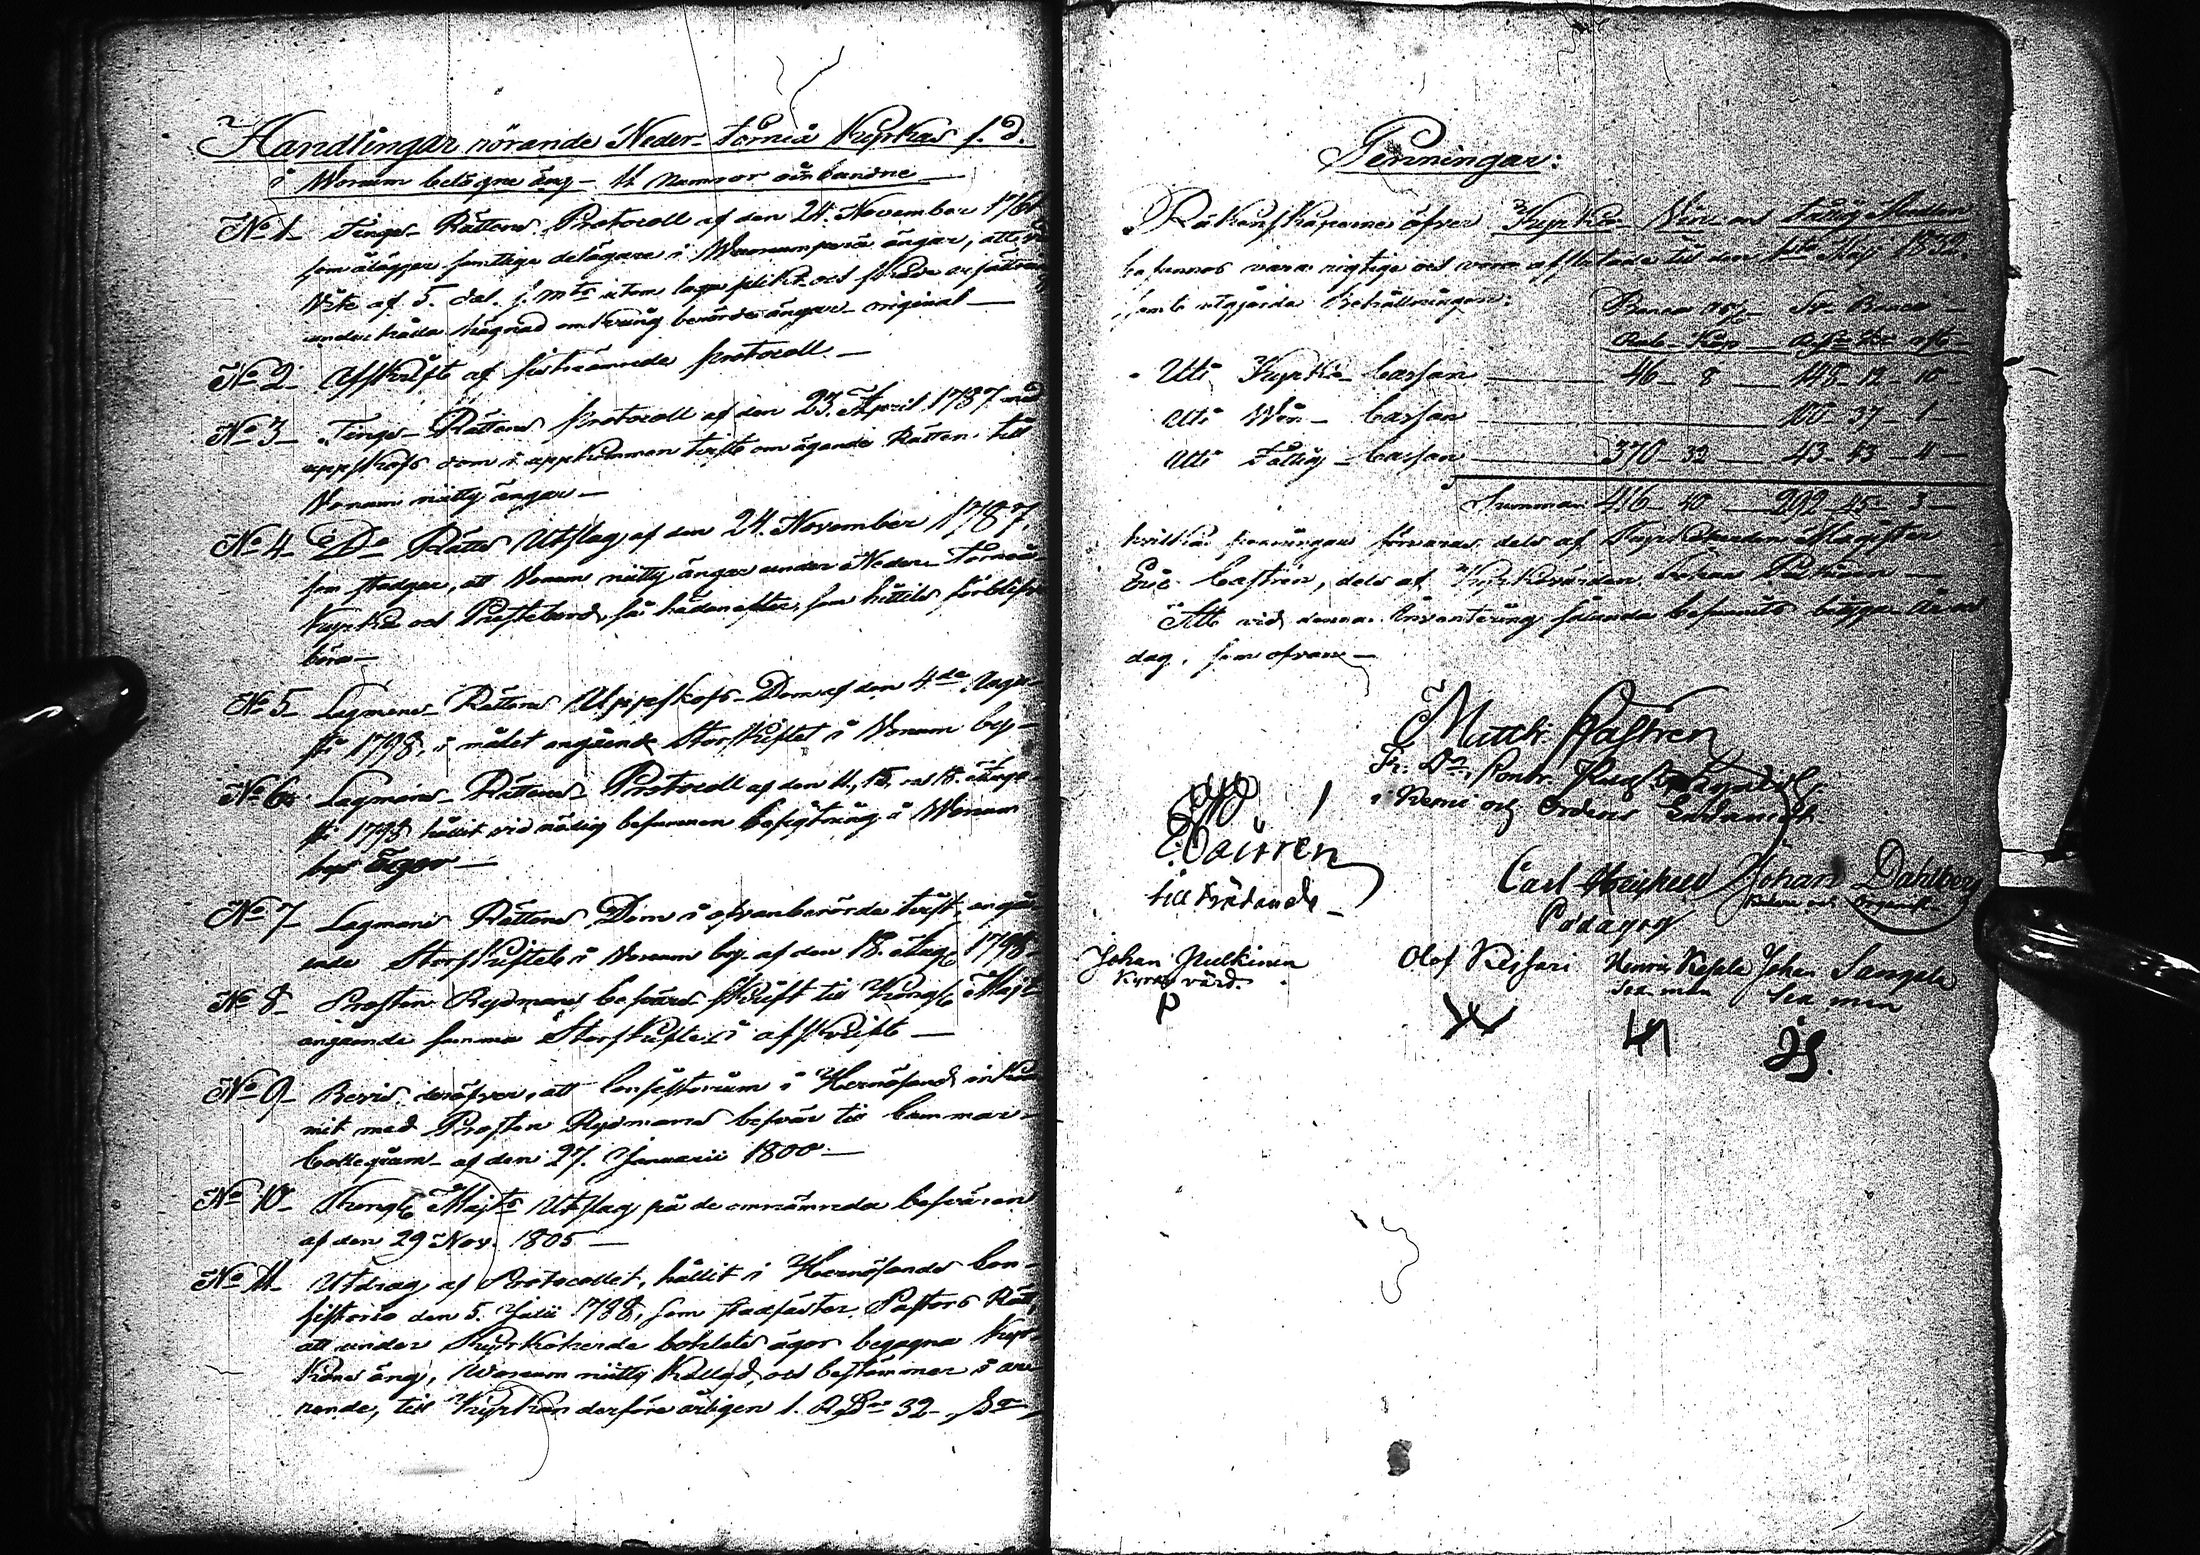 Handlingar rörande Neder-Torneå Kyrkas f. d.
i Wonum belägne äng - 11 Numror oinbundne
No 1 Tings-Rättens Protocoll af den 24. November 176
som ålägger samtlige delägare i ängar, att
Wite af 5. dal. s. mt utom laga plikt och
underhålla hägnad omkring berörde ängar - original -
No 2 Afskrift af sistnämnde protocoll. -
No 3 Tings-Rättens protocoll af den 23. April 1787 med
uppskofs dom i uppkommen twist om ägande Rätten till
Wonum niitty ängar -
No 4 Do Rätts Utslag af den 24. November 1787,
som stadgar, att Wonum niitty ängar under Neder-Torneå
Kyrka och Prestebord, få hädanefter, som hittils förblifva
böra -
No 5 Lagmans-Rättens Uppskofs-Dom af den 4de Augu-
sti 1798, i målet angående Storskiftet i Wonum by -
No 6 Lagmans-Rättens Protocoll af den 11, 15, och 18. Augu-
sti 1798 hållit vid nödig befunnen besigtning å Wonum
bys Ägor -
No 7 Lagmans Rättens Dom i ofvanberörde twist, angå-
ende Storskiftet i Wonum by af den 18. Aug 1798
No 8 Prosten Rydmans besvärs skrift till Kongl. Majt
angående samma Storskifte i afskrift -
No 9 Bevis deröfver, att Consistorium i Hernösand inkom-
mit med Prosten Rydmans besvär till Cammar-
Collegium - af den 27. Januarii 1800 -
No 10 Kongl Majts Utslag på de omnämnda besvären
af den 29 Nov. 1805 -
No 11 Utdrag af Protocollet, hållit i Hernösands Con-
sistorio den 5. Julii 1788, som stadfäster Pastors Rätt,
att under Kyrkoherde bohlets ägor begagna Kyr-
kans äng, Wonum niitty kallad, och bestämmer i arr-
rende, till Kyrkan derföre årligen 1. RDr 32
Penningar:
Räkenskaperne öfver Kyrko- Win- och Fattig
befunnos vara rigtige och voro afslutade till den 1sta Maji 1832.
samt utgjorde Behållningen:
Banco Sv. Banco
Rub- Kop
Uti Kyrko-Cassan 46- 8 - 148- 12- 10-
Uti Win-Cassan 100- 37- 1-
Uti Fattig-Cassan 370- 32 - 43- 43- 4-
Summan 416- 40 - 292- 45- 3-
hvilka penningar förvaras dels af Magister
Eric Castrén, dels af Kyrkovärden Johan
Att vid denna Inventering sålunda befunnits betygar År och
dag, som ofvan -
Matth. Castrén
i Kemi och Ordens Ledamot
E. Castrén
tillträdande -
Carl Heickell
Pädagog
Johan Dahlberg
Johan Pulkinen
Kyrko värd.
Olof
Henric
sex man
Johan Sangela
sex man
JS.